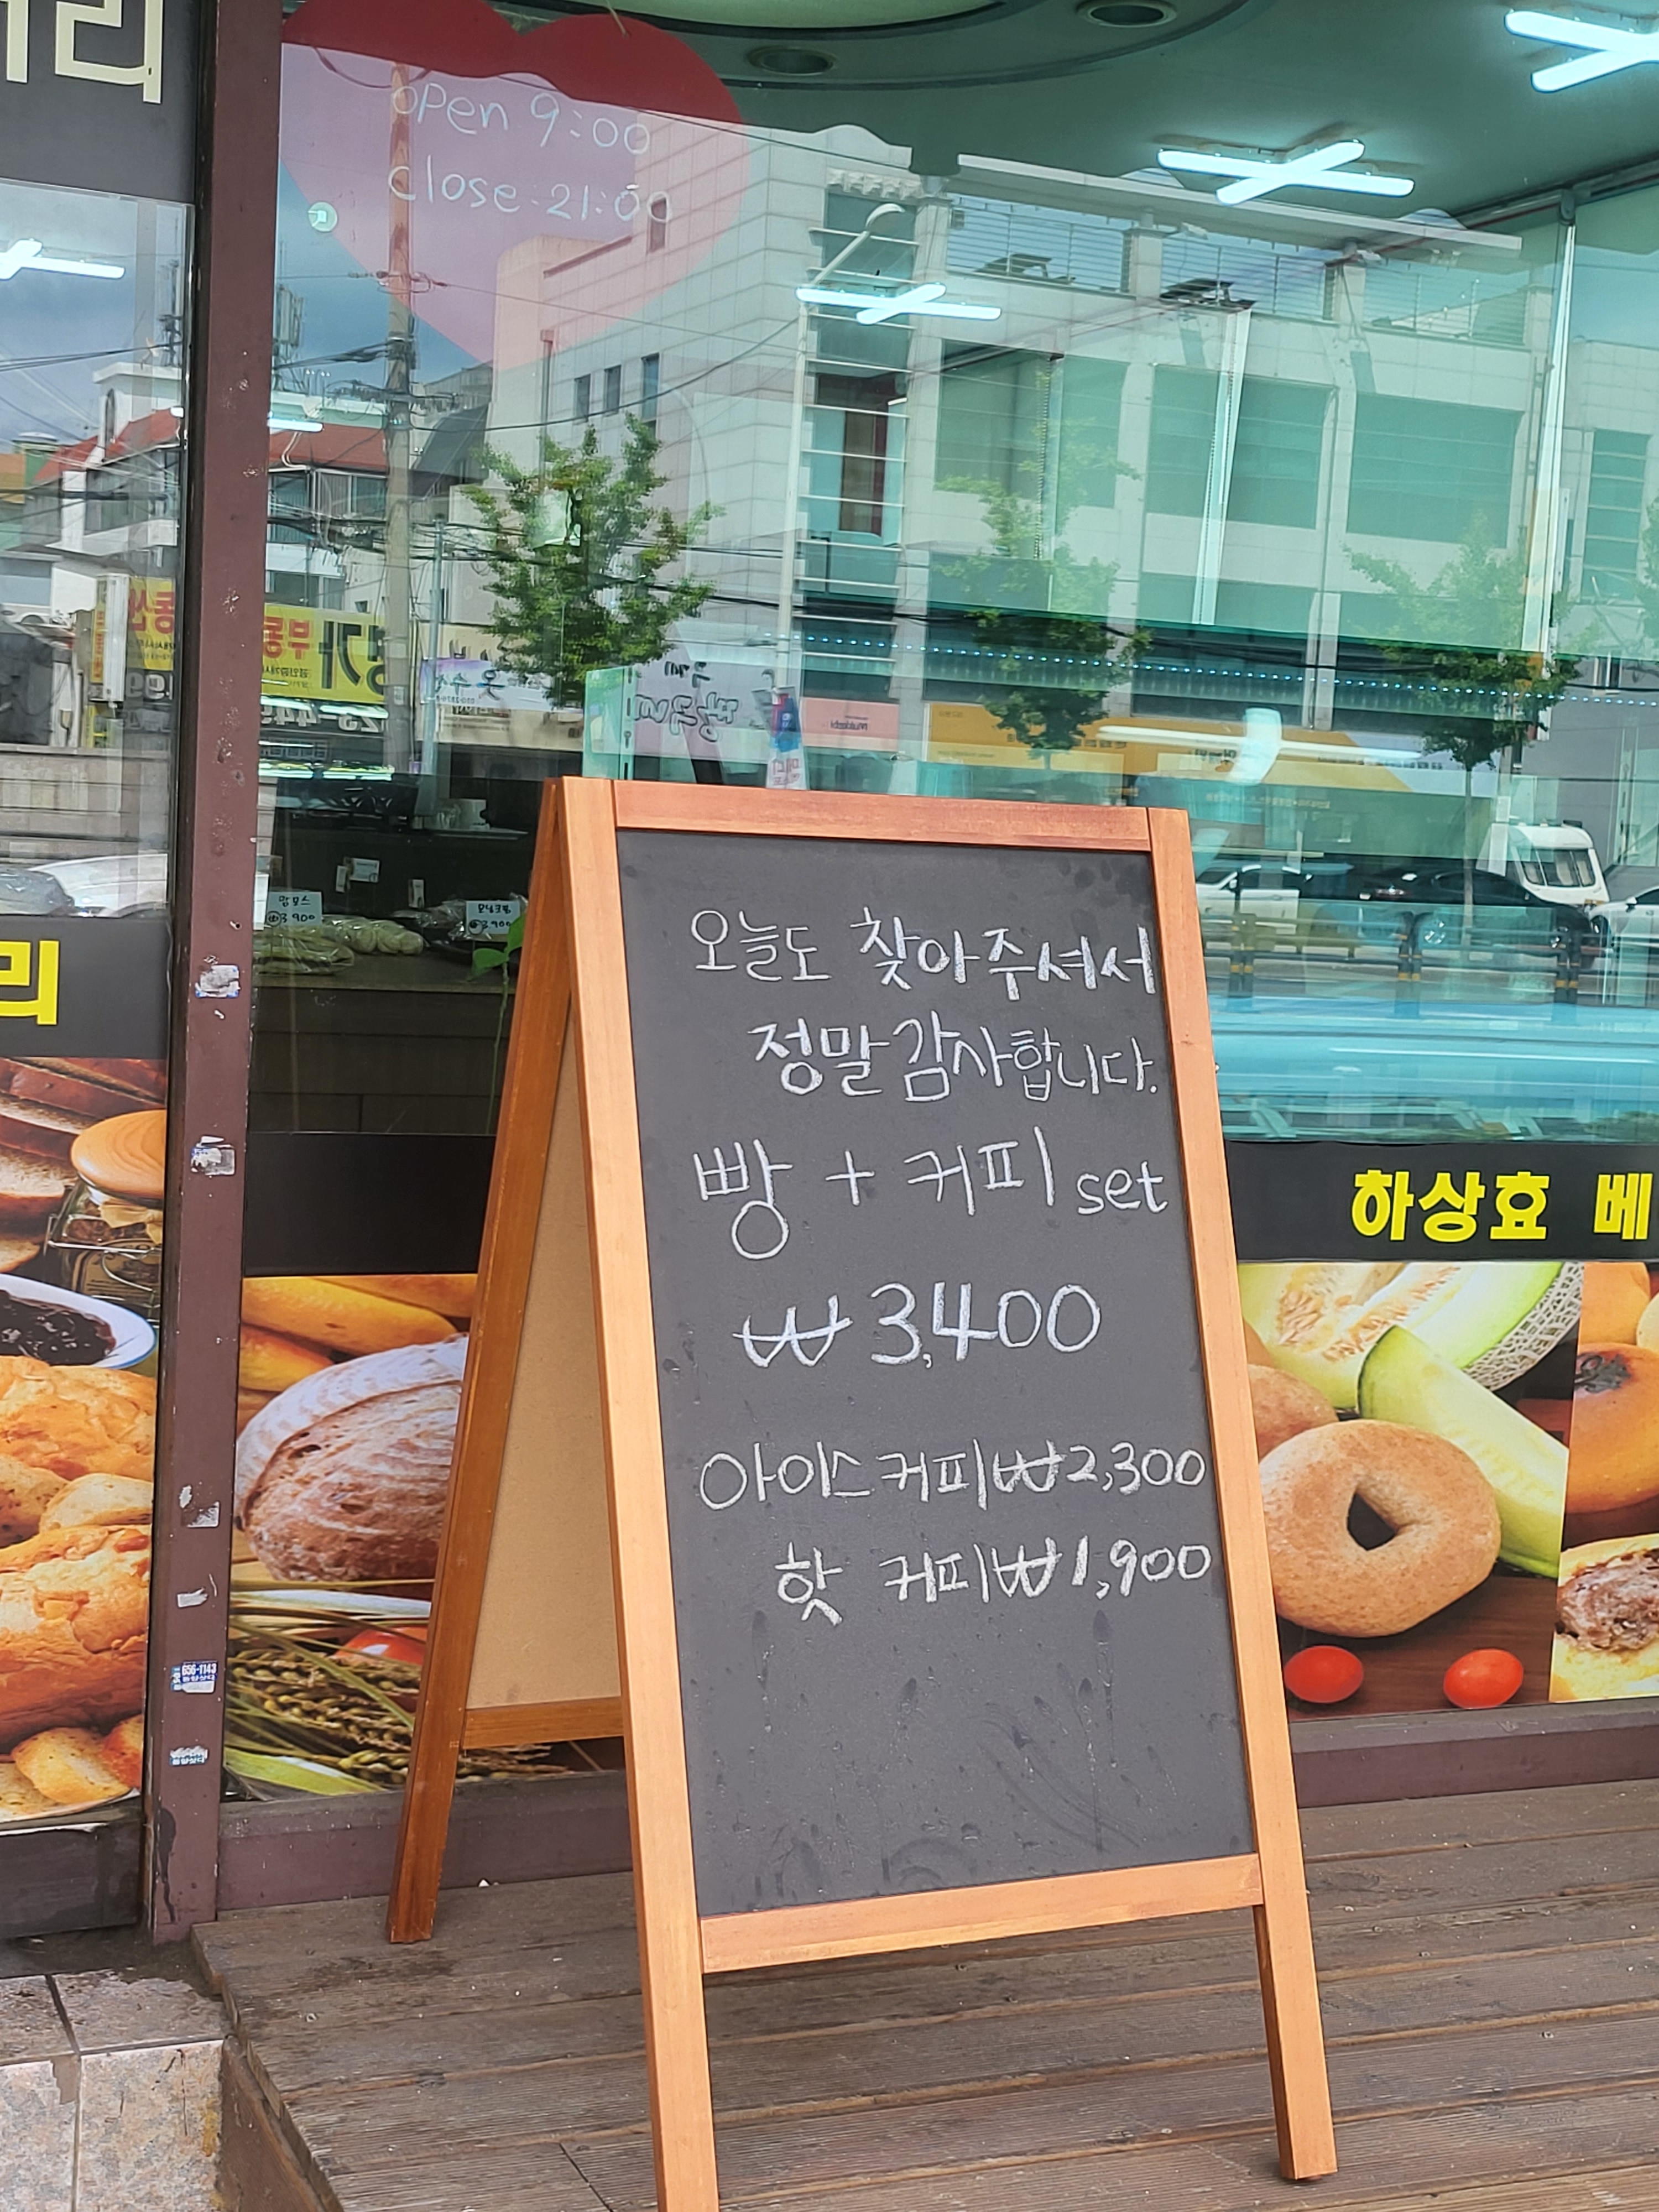 open 9:00
close:21:00
맘모스
₩3900
모닝크림
₩3900
오늘도 찾아주셔서
정말 감사합니다.
빵 + 커피 set
₩3,400
아이스커피₩2,300
핫 커피₩1,900
리
하상효 베
656-1143